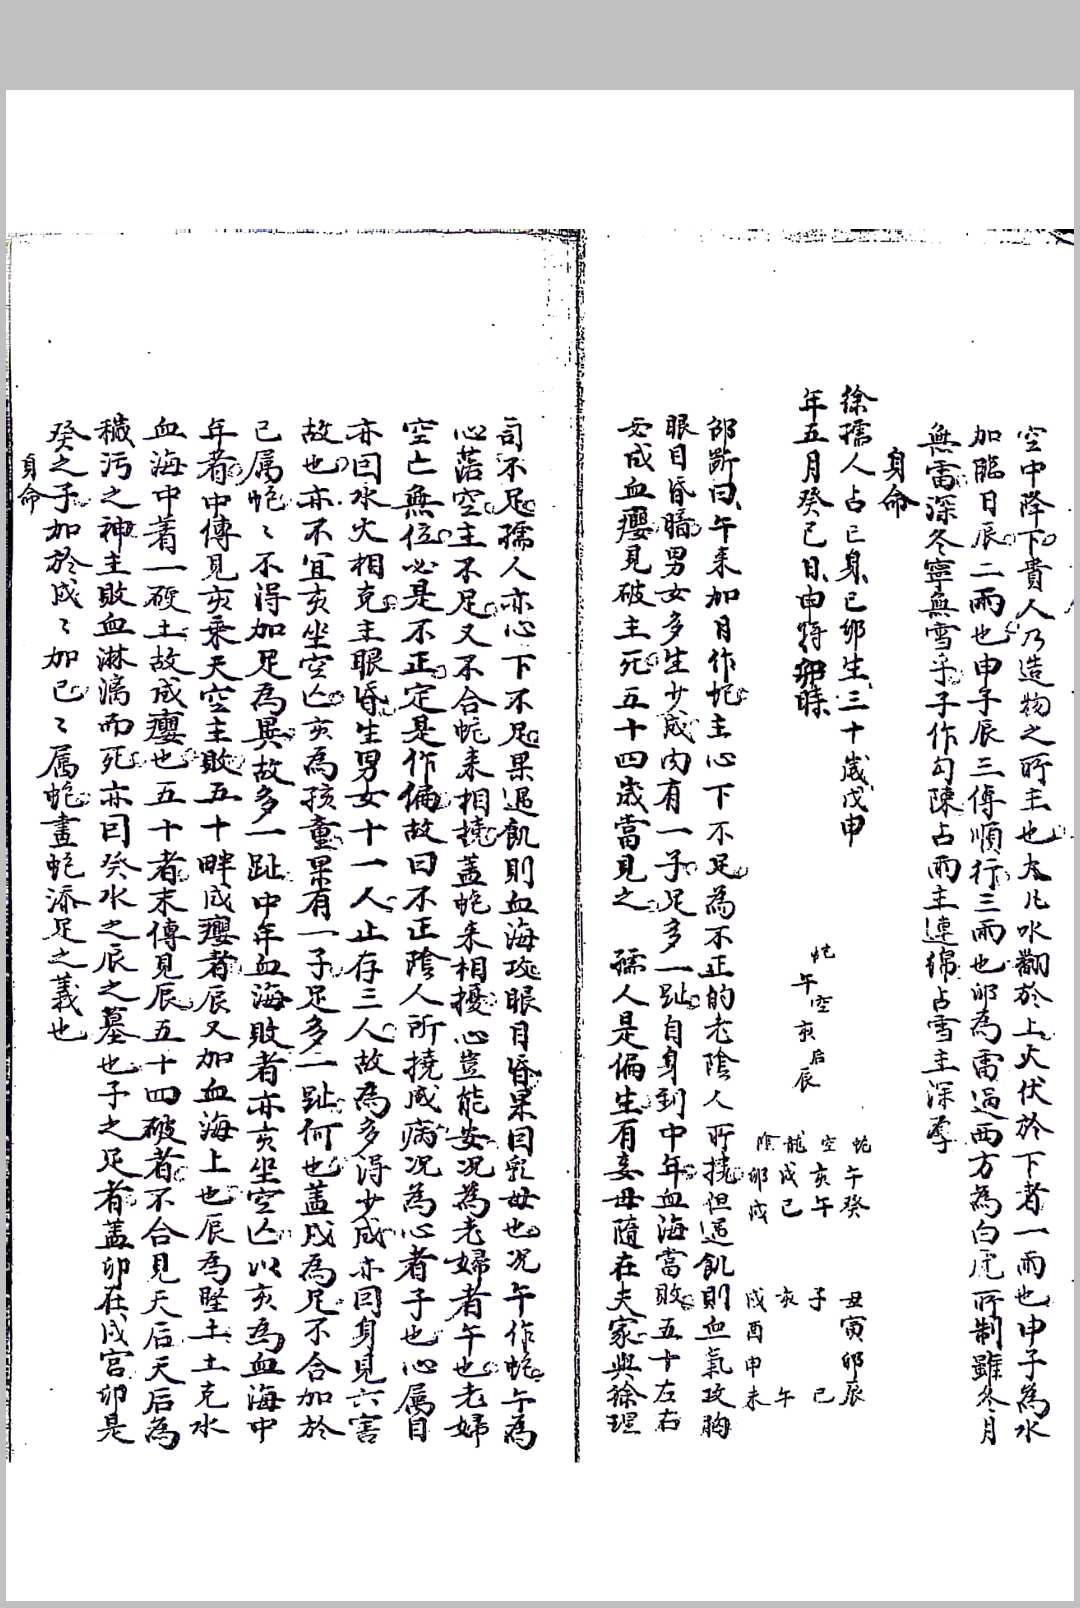 空中降下貴人乃造物之所主也大凡水翻於上火伏於下者一雨也申子為水
加臨日辰二雨也申子辰三傳順行三雨也卯為雷逼西方為白虎所制雖冬月
無雷深冬寧無雪乎子作勾陳占雨主連綿占雪主深厚
身命
徐孺人占已身己卯生三十歲戊申
年五月癸巳日申將卯時
蛇
午空亥后辰
蛇空龍陰
午亥戌卯
癸午巳戌
丑寅卯辰
子 巳
亥 午
戌酉申未
邵斷曰午來加日作蛇主心下不足為不正的老陰人所撓但逼飢則血氣攻胸
眼目昏暗男女多生少成内有一子足多一趾自身到中年血海當敗五十左右
必成血癭見破主死五十四歲當見之 孺人是偏生有妾母隨在夫家與徐理
司不足孺人亦心下不足果逼飢則血海攻眼目昏果因乳母也况午作蛇午為
心落空主不足又不合蛇來相撓蓋蛇來相擾心豈能安况為老婦者午也老婦
空亡無位必是不正定是作偏故曰不正陰人所撓成病况為心者子也心屬目
亦曰水火相克主眼昏生男女十一人止存三人故為多得少成亦曰身見六害
故也亦不宜亥坐空亡亥為孩童果有一子足多一趾何也蓋戌為足不合加於
巳屬蛇〻不得加足為異故多一趾中年血海敗者亦亥坐空亡以亥為血海中
年者中傳見亥乘天空主敗五十畔成癭者辰又加血海上也辰為堅土土克水
血海中着一硬土故成癭也五十者末傳見辰五十四破者不合見天后天后為
穢污之神主敗血淋漓而死亦曰癸水之辰之墓也子之足者蓋卯在戌宮卯是
癸之子加於戌〻加巳〻属蛇畫蛇添足之義也
身命